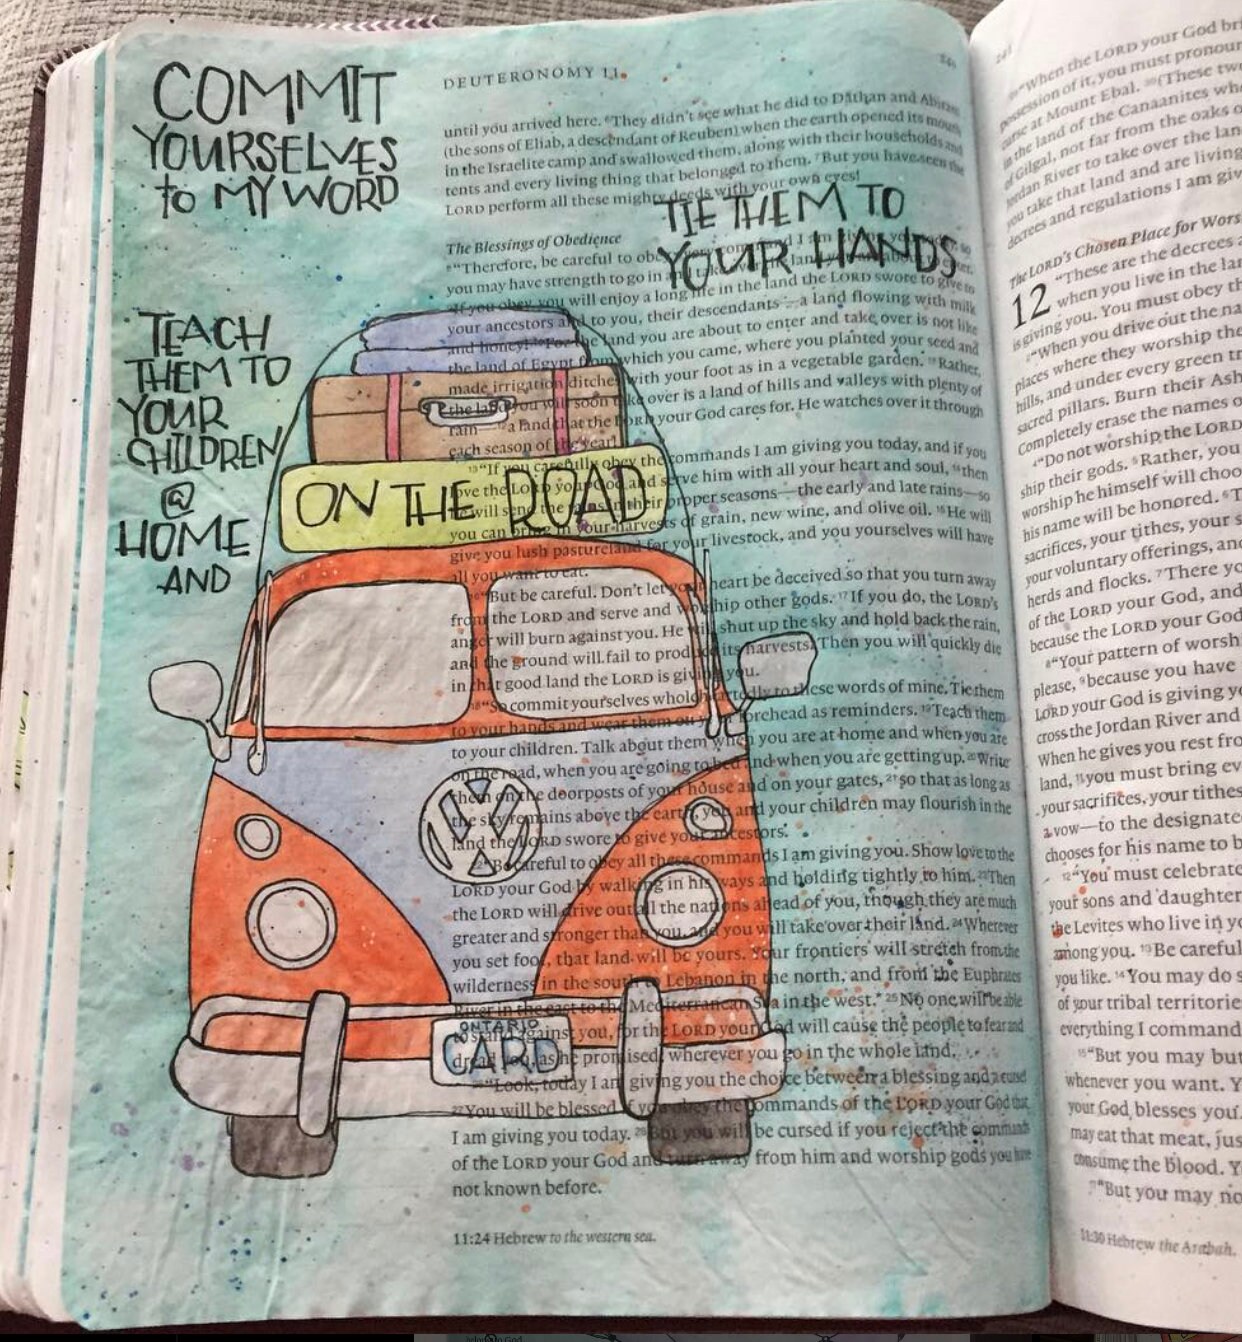 COMMIT
YOURSELVES
to MY WORD
TEACH
THEM TO
YOUR
CHILDREN
@
HOME
AND
ON THE ROAD
TIE THEM TO
YOUR HANDS
ONTARIO
CARD
DEUTERONOMY 11
until you arrived here. ⁶They didn't see what he did to Dathan and Abiram
(the sons of Eliab, a descendant of Reuben) when the earth opened its mouth
in the Israelite camp and swallowed them, along with their households and
tents and every living thing that belonged to them. ⁷But you have seen the
LORD perform all these mighty deeds with your own eyes!
The Blessings of Obedience
⁸“Therefore, be careful to obey every command I am giving you
you may have strength to go in and take over the land
If you obey, you will enjoy a long life in the land the LORD swore to give to
your ancestors and to you, their descendants—a land flowing with milk
and honey! ¹⁰For the land you are about to enter and take over is not like
the land of Egypt from which you came, where you planted your seed and
made irrigation ditches with your foot as in a vegetable garden. ¹¹Rather,
the land you will soon take over is a land of hills and valleys with plenty of
rain—¹²a land that the LORD your God cares for. He watches over it through
each season of the year!
¹³“If you carefully obey the commands I am giving you today, and if you
love the LORD your God and serve him with all your heart and soul, ¹⁴then
he will send the rains in their proper seasons—the early and late rains—so
you can bring in your harvests of grain, new wine, and olive oil. ¹⁵He will
give you lush pastureland for your livestock, and you yourselves will have
all you want to eat.
¹⁶“But be careful. Don't let your heart be deceived so that you turn away
from the LORD and serve and worship other gods. ¹⁷If you do, the LORD's
anger will burn against you. He will shut up the sky and hold back the rain,
and the ground will fail to produce its harvests. Then you will quickly die
in that good land the LORD is giving you.
¹⁸“So commit yourselves wholeheartedly to these words of mine. Tie them
to your hands and wear them on your forehead as reminders. ¹⁹Teach them
to your children. Talk about them when you are at home and when you are
on the road, when you are going to bed and when you are getting up. ²⁰Write
them on the doorposts of your house and on your gates, ²¹so that as long as
the sky remains above the earth, you and your children may flourish in the
land the LORD swore to give your ancestors.
²²“Be careful to obey all these commands I am giving you. Show love to the
LORD your God by walking in his ways and holding tightly to him. ²³Then
the LORD will drive out all the nations ahead of you, though they are much
greater and stronger than you, and you will take over their land. ²⁴Wherever
you set foot, that land will be yours. Your frontiers will stretch from the
wilderness in the south to Lebanon in the north, and from the Euphrates
River in the east to the Mediterranean Sea in the west.* ²⁵No one will be able
to stand against you, for the LORD your God will cause the people to fear and
dread you, as he promised, wherever you go in the whole land.
²⁶“Look, today I am giving you the choice between a blessing and a curse!
²⁷You will be blessed if you obey the commands of the LORD your God that
I am giving you today. ²⁸But you will be cursed if you reject the commands
of the LORD your God and turn away from him and worship gods you have
not known before.
11:24 Hebrew to the western sea.
²⁹“When the LORD your God bri
possession of it, you must pronoun
curse at Mount Ebal. ³⁰(These tw
in the land of the Canaanites wh
of Gilgal, not far from the oaks o
Jordan River to take over the lan
you take that land and are living
decrees and regulations I am giv
The LORD's Chosen Place for Wors
12 “These are the decrees a
when you live in the lan
is giving you. You must obey th
²“When you drive out the na
places where they worship the
hills, and under every green tr
sacred pillars. Burn their Ash
Completely erase the names o
⁴“Do not worship the LORD
ship their gods. ⁵Rather, you
worship he himself will choo
his name will be honored. ⁶T
sacrifices, your tithes, your s
your voluntary offerings, and
herds and flocks. ⁷There yo
of the LORD your God, and
because the LORD your God
⁸“Your pattern of worsh
please, ⁹because you have
LORD your God is giving yo
cross the Jordan River and
When he gives you rest fro
land, ¹¹you must bring ev
your sacrifices, your tithes
a vow—to the designate
chooses for his name to b
¹²“You must celebrate
your sons and daughter
the Levites who live in yo
among you. ¹³Be careful
you like. ¹⁴You may do s
of your tribal territorie
everything I command
¹⁵“But you may but
whenever you want. Y
your God blesses you.
may eat that meat, jus
consume the blood. Y
¹⁷“But you may no
11:30 Hebrew the Arabah.